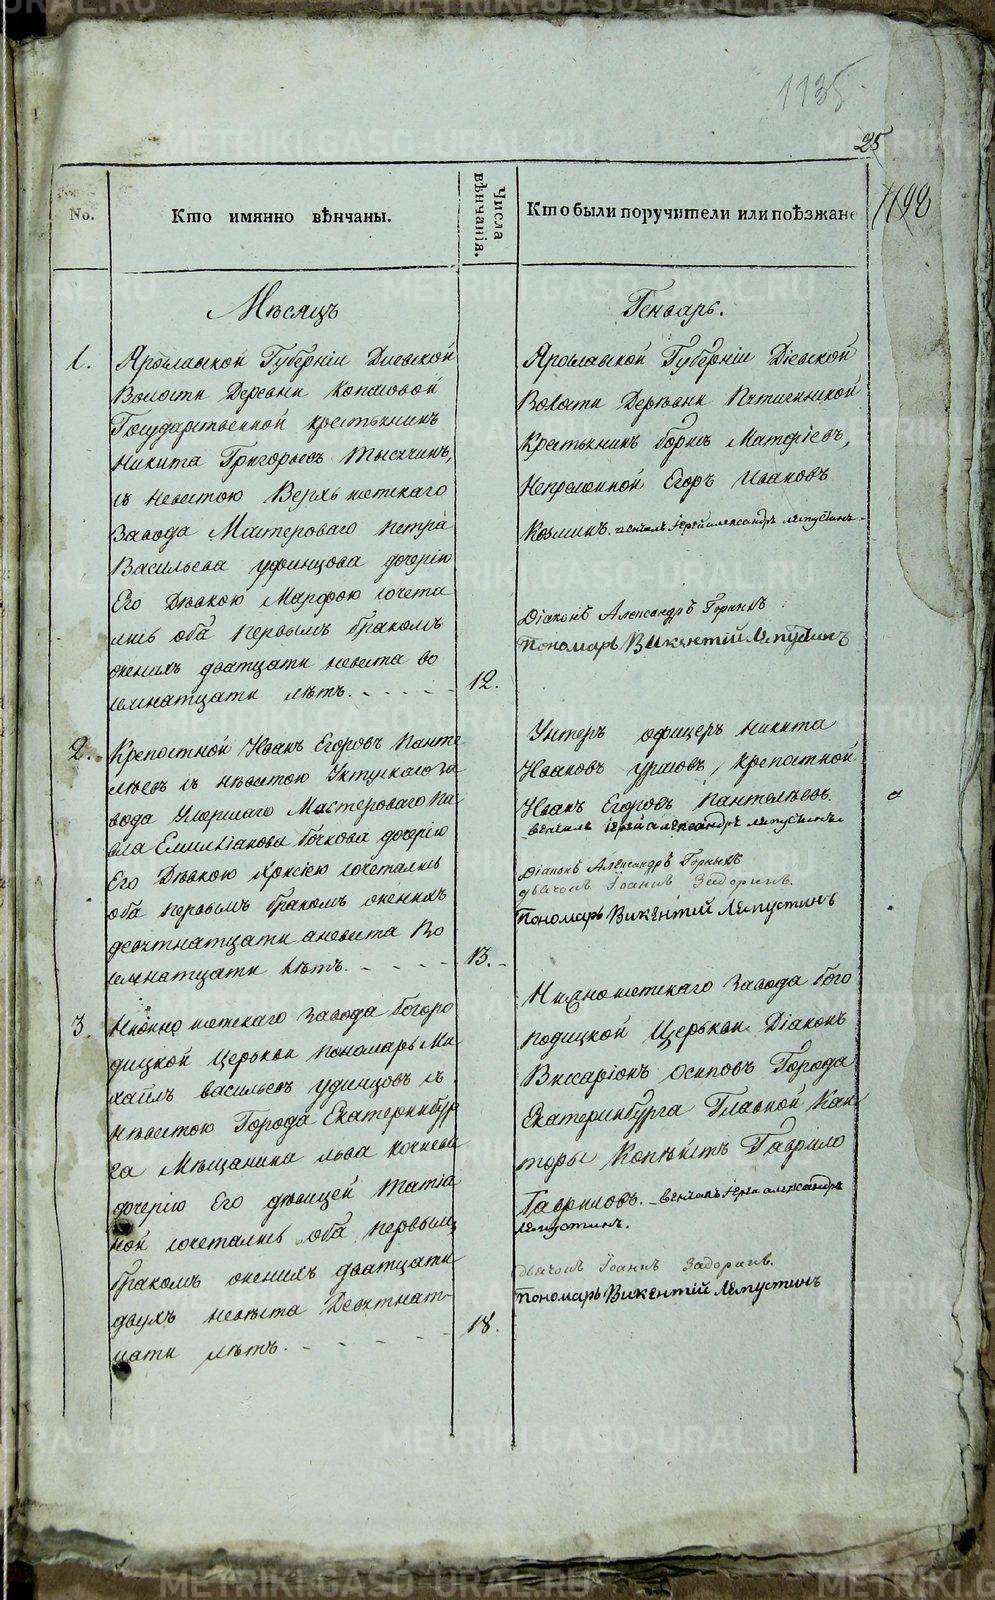 1135
25
1198
No.
Кто имянно вѣнчаны.
Числа вѣнчанія.
Кто были поручители или поѣзжане
Мѣсяцъ
Генварь.
1.
Ярославской Губерніи Диевской
Волости Деревни Копасовой
Государственной крестьянинъ
Никита Григорьевъ Тысячинъ,
съ невестою Верхъ исетскаго
Завода Мастероваго Петра
Васильева Уфинцова дочерію
Его Дѣвкою Марфою сочета
лись оба первымъ бракомъ
жених дватцати невеста во
семнатцати лѣтъ.
12.
Ярославской Губерніи Діевской
Волости Деревни
Крестьянинъ Борисъ Матфіевъ,
Непременной Егоръ Ивановъ
Козминъ. венчалъ Іерей александръ ляпустинъ.
Діаконъ Александръ Горныхъ
Пономарь Викентій Ляпустинъ
2.
Крепостной Иванъ Егоровъ Панте
лѣевъ съ невѣстою Уктусскаго За
вода Умершаго Мастероваго Па
вла Емиліанова Бочкова дочерію
Его Дѣвкою Ѯксіею сочетались
оба первымъ бракомъ жених
девятнатцати а невеста Во
семнатцати лѣтъ.
13.
Унтеръ офицеръ Никита
Ивановъ Урасовъ, крепостной
Иванъ Егоровъ Пантелѣевъ.
венчалъ іерей александръ ляпустинъ
Діаконъ Александръ Горныхъ
дьячокъ Іоаннъ Задоринъ.
Пономарь Викентій Ляпустинъ
3.
Нижно исетскаго Завода Богоро
дицкой Церькви пономарь Ми
хайлъ Васильевъ Удинцовъ съ
невѣстою Города Екатеринбур
га Мещанина Льва Кочнева
дочерію Его дѣвицей Татіа
ной сочетались оба первымъ
бракомъ женихъ дватцати
двухъ невѣста Девятнат-
цати лѣтъ.
18.
Нижно исетскаго Завода Бого
родицкой Церькви Діаконъ
Виссаріонъ Осиповъ Города
Екатеринбурга Главной Кан
торы Копѣистъ Гаврило
Гавриловъ. венчалъ іерей александръ
ляпустинъ.
дьячокъ Іоаннъ Задоринъ.
Пономарь Викентій Ляпустинъ
METRIKI.GASO-URAL.RU